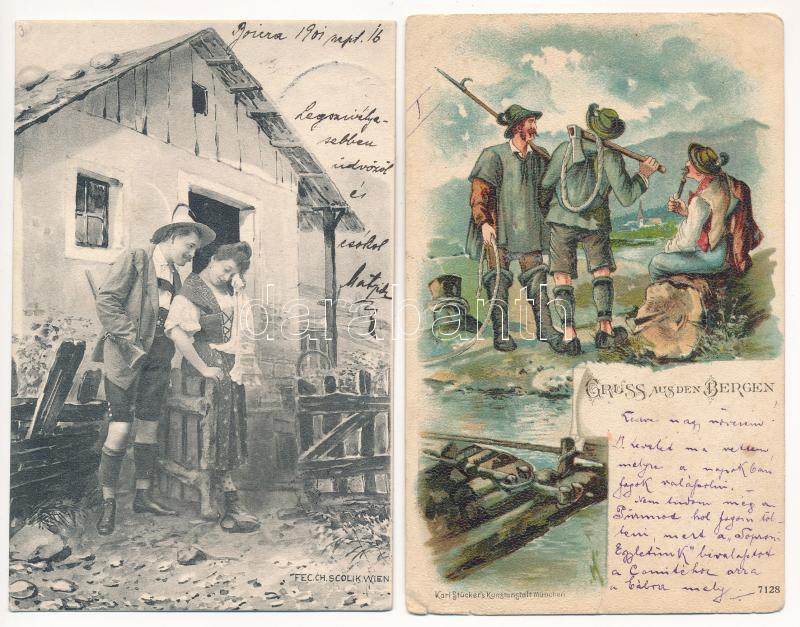 1901 sept. 16
Legszivélye-
sebben
üdvözöl
és
csókol
FEC. CH. SCOLIK WIEN
darabanth
GRUSS AUS DEN BERGEN
nagy
A levelet ma vettem
melyre a napokban
fogok válaszolni,
Nem tudom még a
hol fogom töl-
teni, mert a „Soproni
a Comitéhoz arra
a bálra mely
Karl Stücker's Kunstanstalt München
7128